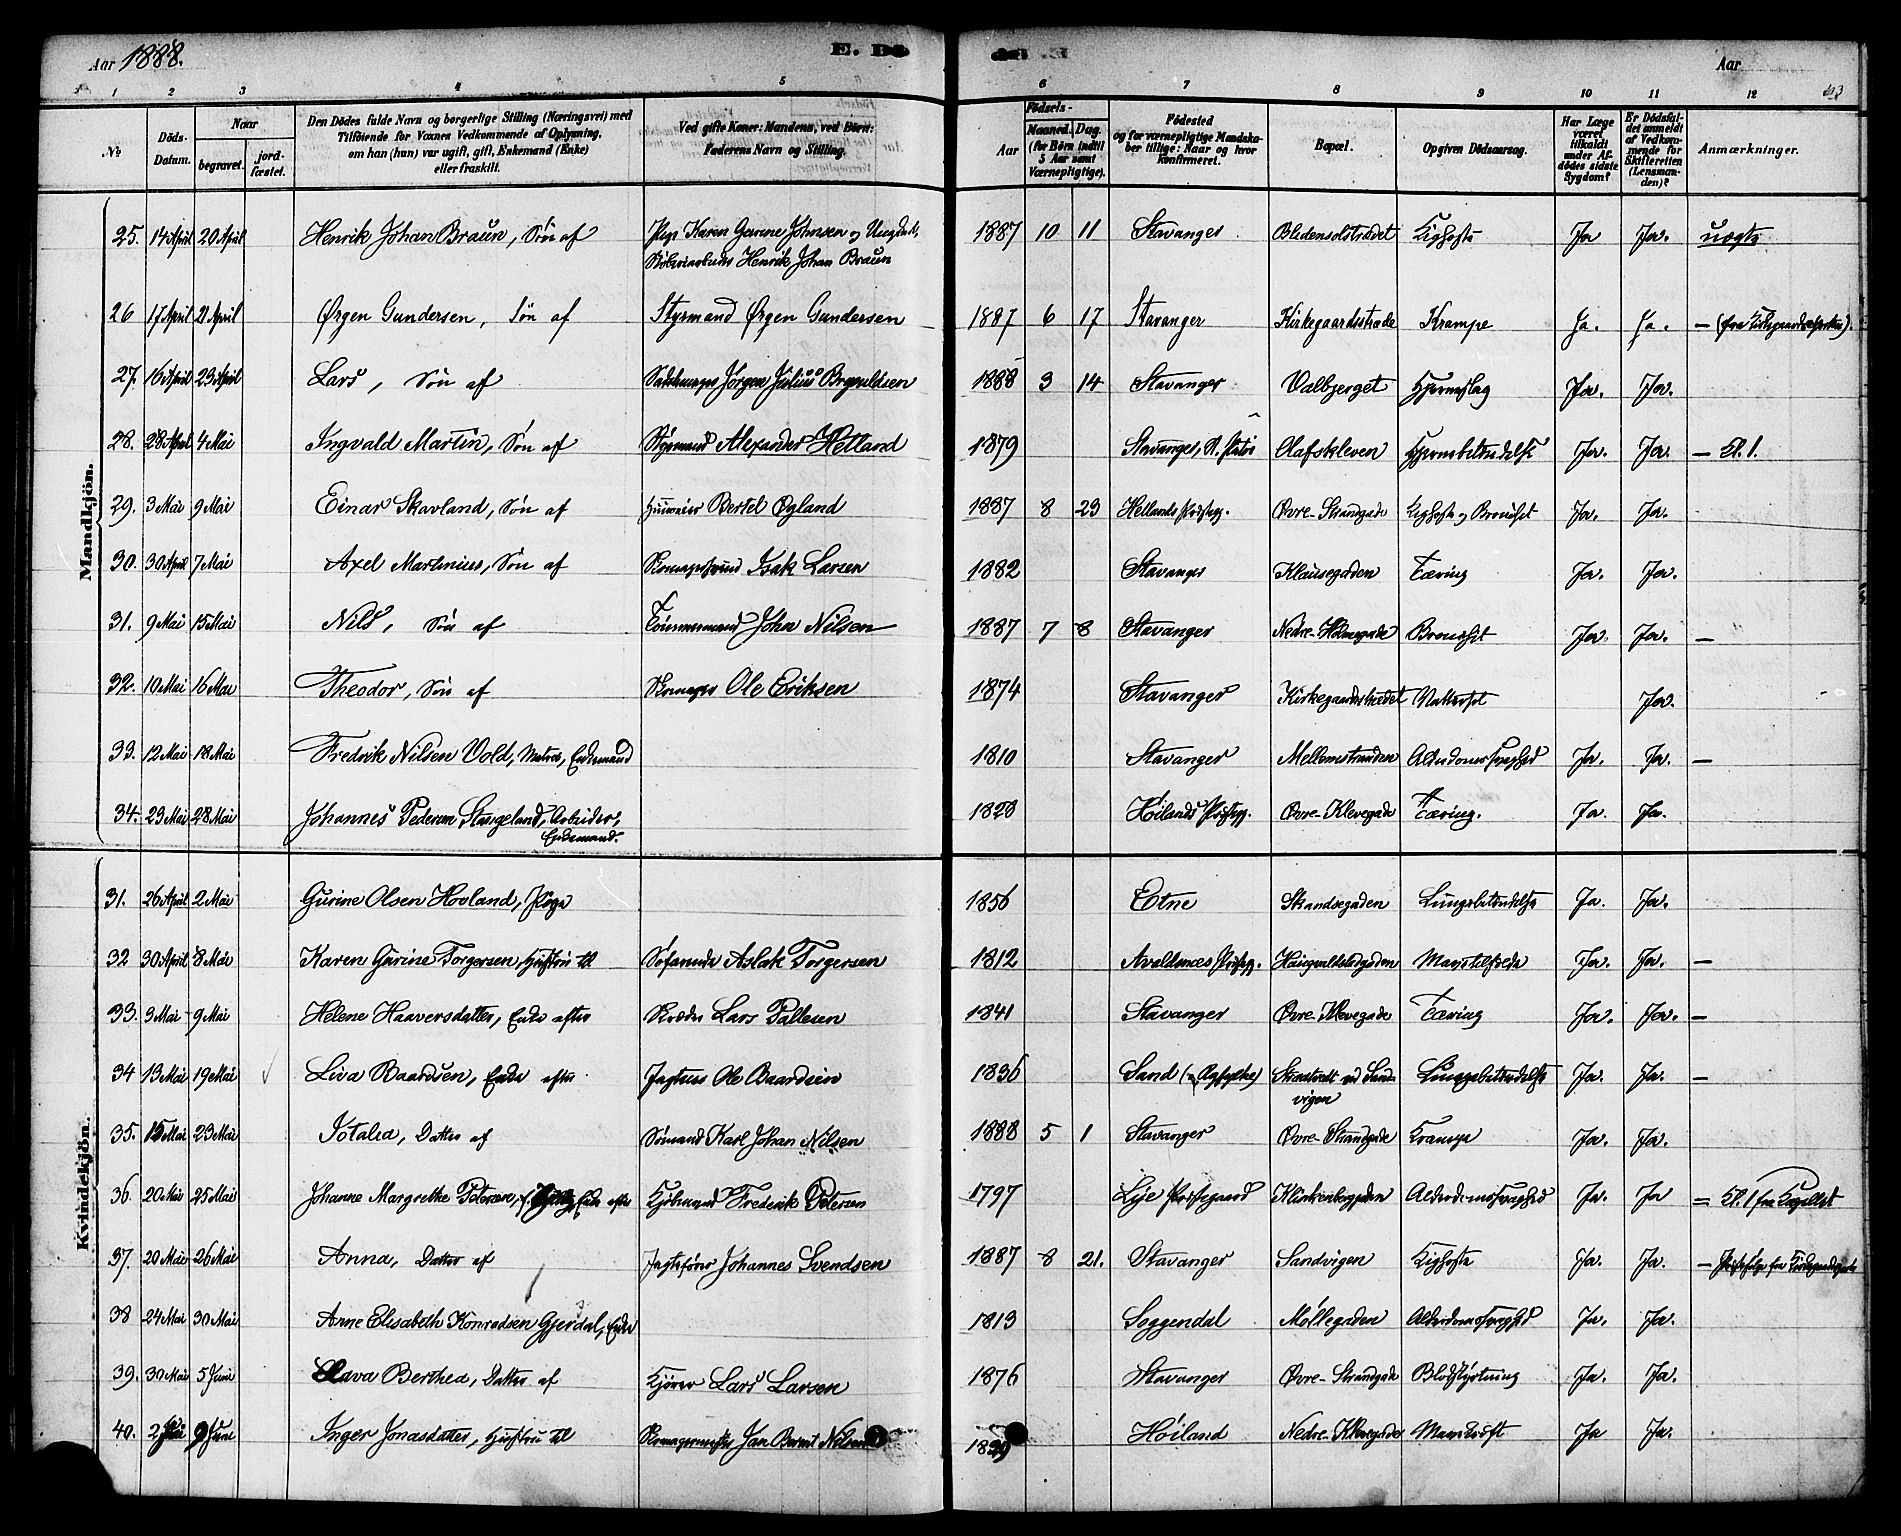 Aar 1888. E. Dö Aar 43
1 2 3 4 5 6 7 8 9 10 11 12
No Döds-Datum. Naar begravet. jord-fæstet. Den Dödes fulde Navn og borgerlige Stilling (Næringsvei) med Tilföiende for Voxnes Vedkommende af Oplysning, om han (hun) var ugift, gift, Enkemand (Enke) eller fraskilt. Ved gifte Koner: Mandens, ved Börn: Faderens Navn og Stilling. Aar Födsels-Maaned. Dag. (for Börn indtil 5 Aar samt Værnepligtige). Födested og for værnepligtige Mandskaber tillige: Naar og hvor konfirmeret. Bopæl. Opgiven Dödsaarsag. Har Læge været tilkaldt under Afdödes sidste Sygdom? Er Dödsfaldet anmeldt af Vedkommende for Skifteretten (Lensmanden)? Anmærkninger.
Mandkjön.
25. 14 April 20 April Henrik Johan Braun, Søn af Pige Karen Gurine Johnsen og Ungkarl, 1887 10 11 Stavanger Blidensolstrædet Kighoste Ja Ja. uægte
Henrik Johan Braun
26 17 April 21 April Ørgen Gundersen, Søn af Styrmand Ørgen Gundersen 1887 6 17 Stavanger Kirkegaardsstræde Krampe Ja. Ja. –
27. 16 April 23 April Lars, Søn af Jørgen Julius 1888 3 14 Stavanger Valbjerget Hjerneslag Ja. Ja.
28. 28 April 4 Mai Ingvald Martin, Søn af Styrmand Alexander Hetland 1879 Stavanger, Olafskleven Hjernebetændelse Ja. Ja. – Kl. 1.
29. 3 Mai 9 Mai Einar Skavland, Søn af Bertel Øyland 1887 8 23 Hellands Præsteg. Øvre-Strandgade Kighoste og Bronchit Ja. Ja.
30. 30 April 7 Mai Axel Martinius, Søn af Skomagersvend Isak Larsen 1882 Stavanger Klausegaden Tæring Ja. Ja.
31. 9 Mai 15 Mai Nils, Søn af Tømmermand John Nilsen 1887 7 8 Stavanger Nedre-Holmegade Bronchit Ja. Ja. –
32. 10 Mai 16 Mai Theodor, Søn af Skomager Ole Eriksen 1874 Stavanger Kirkegaardsstrædet Vattersot Ja.
33. 12 Mai 18 Mai Fredrik Nilsen Vold, Matros, Enkemand 1810 Stavanger Mellemstranden Alderdomssvaghed Ja. Ja. –
34. 23 Mai 28 Mai Johannes Pedersen Stangeland, Arbeider, 1828 Høilands Præsteg. Øvre-Klevegade Tæring. Ja. Ja.
Enkemand.
Kvindekjön.
31. 26 April 2 Mai Gurine Olsen Hovland, Pige 1856 Etne Strandgaden Lungebetændelse Ja. Ja.
32 30 April 8 Mai Karen Gurine Torgersen, Hustru til Søfarende Aslak Torgersen 1812 Avaldsnes Præsteg. Ja. Ja. –
33. 3 Mai 9 Mai Helene Haaversdatter, Enke efter Skræder Lars Pallesen 1841 Stavanger Øvre-Klevegade Tæring Ja. Ja. –
34 13 Mai 19 Mai Liva Baardsen, Enke efter Ole Baardsen 1836 Sand (Ryfylke) ved Sand- Lungebetændelse Ja. Ja. –
vigen
35. 15 Mai 23 Mai Jotalia, Datter af Sømand Karl Johan Nilsen 1888 5 1 Stavanger Øvre-Strandgade Krampe Ja. Ja.
36. 20 Mai 25 Mai Johanne Margrethe Petersen, Enke efter Kjøbmand Frederik Petersen 1797 Lye Præstegaard Klinkenberggaden Alderdomssvaghed Ja. Ja = Kl. 1 fra Kapellet
37. 20 Mai 26 Mai Anna, Datter af Jagtefører Johannes Svendsen 1887 8 21. Stavanger Sandvigen Kighoste Ja. Ja. –
38 24 Mai 30 Mai Anne Elisabeth Konradsen Gjerdal, Enke 1813 Soggendal Møllegaden Alderdomssvaghed Ja. Ja.
39. 30 Mai 5 Juni Clava Berthea, Datter af Kjører Lars Larsen 1876 Stavanger Øvre-Strandgade Blodstyrtning Ja. Ja.
40. 2 Juni 9 Juni Inger Jonasdatter, Hustru til Skomagermester Jan Berent Nilsen 1829 Høiland Nedre-Klevegade Ja Ja.